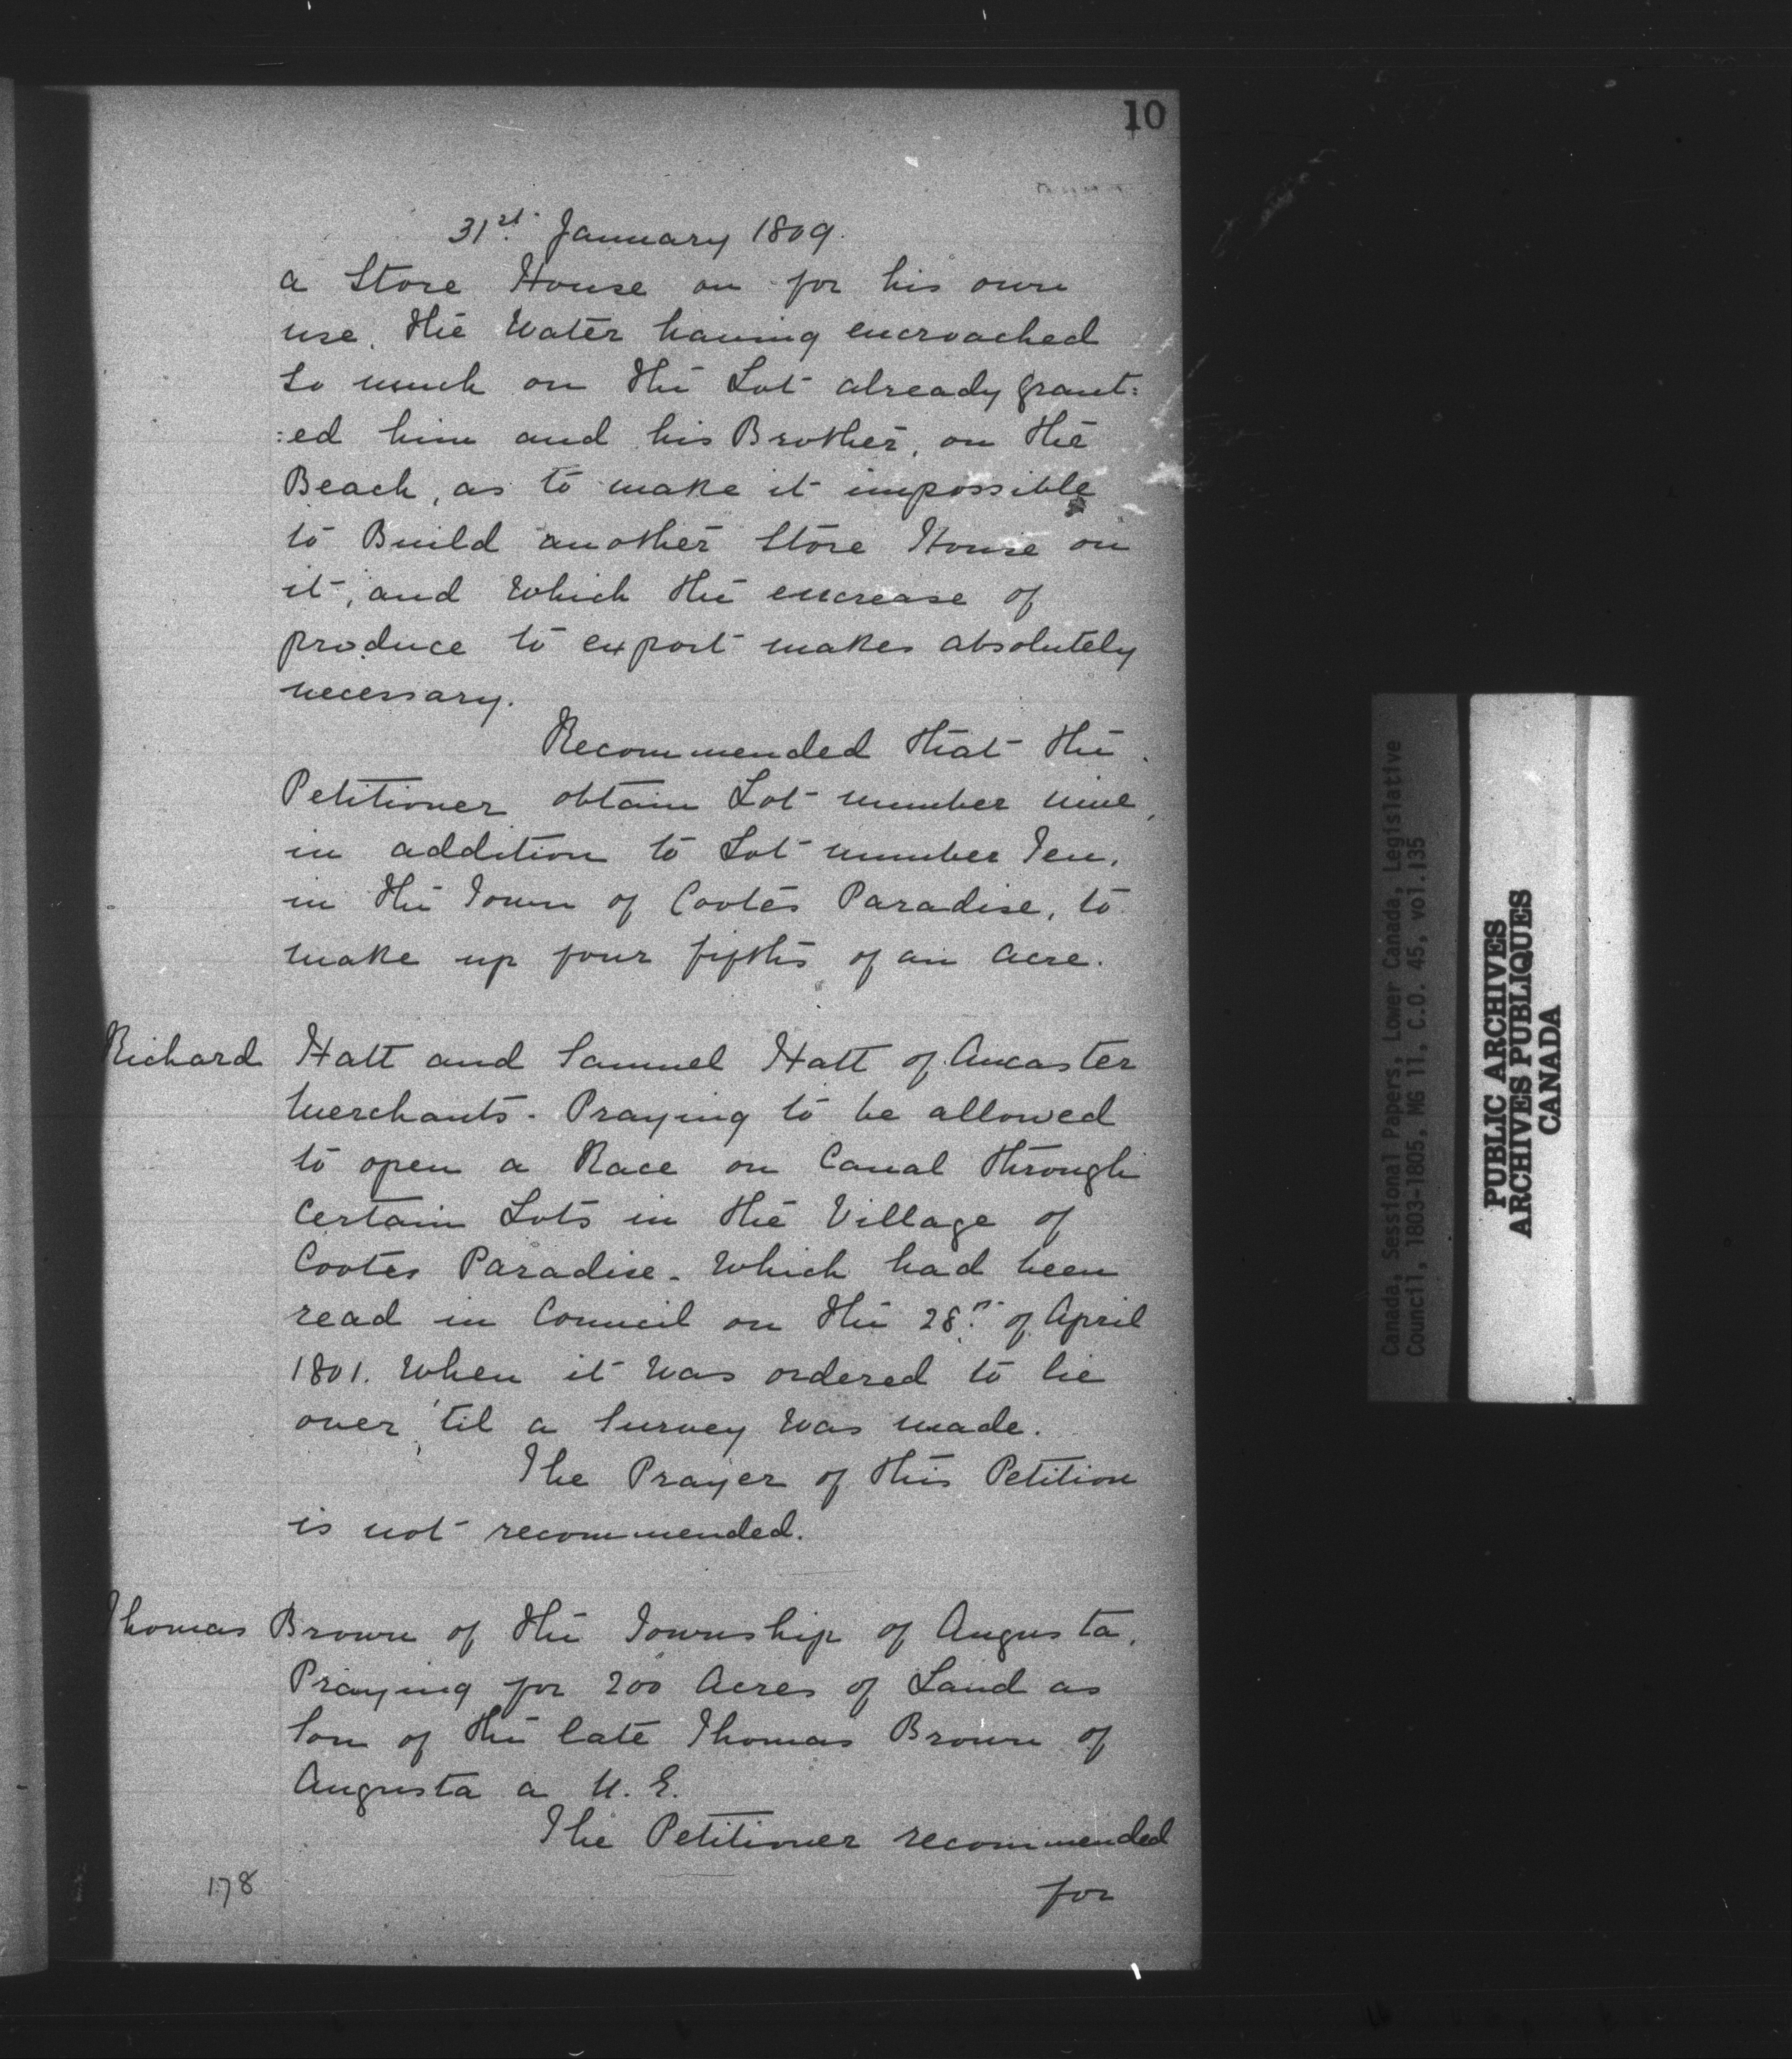 10
31st January 1809.
a Store House on for his own
use, the Water having encroached
so much on the Lot already grant:
:ed him and his Brother, on the
Beach, as to make it impossible
to Build another Store House on
it, and which the encrease of
produce to export makes absolutely
necessary.
Recommended that the
Petitioner obtain Lot number nine,
in addition to Lot number Ten,
in the Town of Cootes Paradise, to
make up four fifths of an acre.
Richard Hatt and Samuel Hatt of Ancaster
Merchants - Praying to be allowed
to open a Race on Canal through
Certain Lots in the Village of
Cootes Paradise - Which had been
read in Council on the 28th of April
1801. When it was ordered to lie
over 'til a Survey was made.
The Prayer of this Petition
is not recommended.
Thomas Brown of the Township of Augusta,
Praying for 200 Acres of Land as
Son of the late Thomas Brown of
Augusta a U. E.
The Petitioner recommended
178
for
Canada, Sessional Papers, Lower Canada, Legislative
Council, 1803-1805, MG 11, C.O. 45, vol.135
PUBLIC ARCHIVES
ARCHIVES PUBLIQUES
CANADA